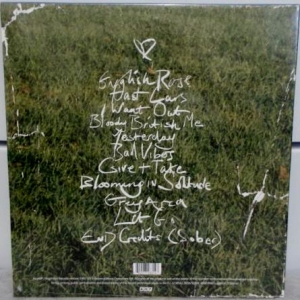 English Rose
Past Lives
Want Out
Bloody British Me
Yesterday
Bad Vibes
Give + Take
Blooming in Solitude
Grey Area
Let Go
End Credits (Sober)